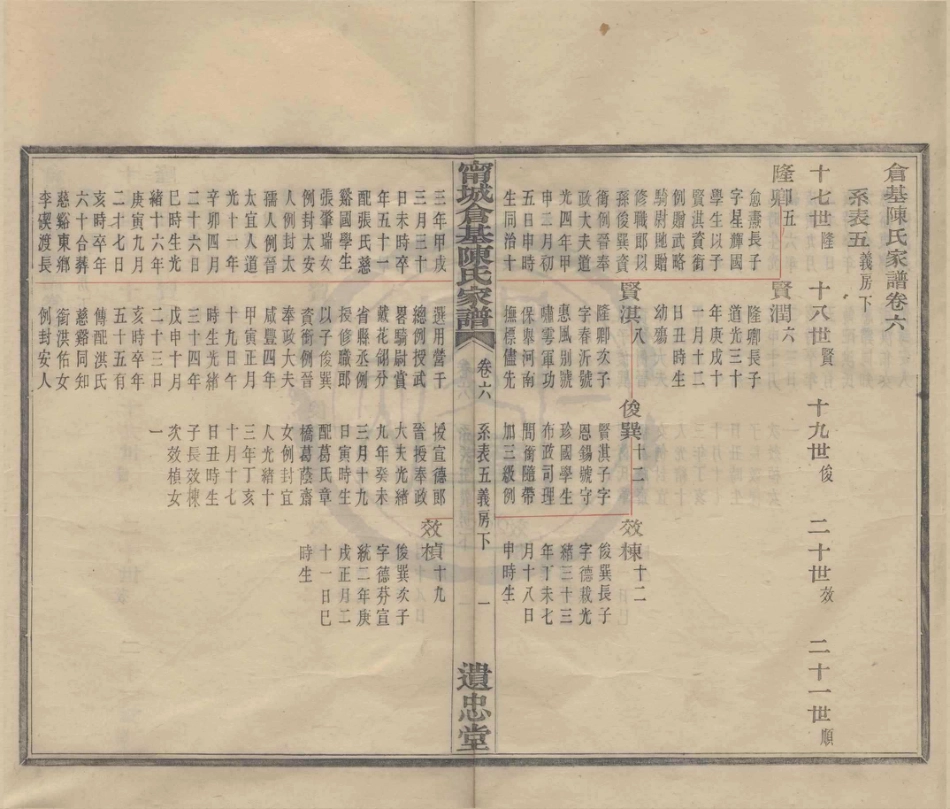 倉基陳氏家譜卷六
系表五 義房下
十七世隆 十八世賢 十九世俊 二十世效 二十一世順
隆卿五
愈燾長子
字星輝國
學生以子
賢淇貲銜
例贈武略
騎尉貤贈
修職郎以
孫俊巽貲
銜例晉奉
政大夫道
光四年甲
申二月初
五日申時
生同治十
三年甲戌
三月三十
日未時卒
年五十一
配張氏慈
谿國學生
張肇瑞女
例封太安
人例封太
孺人例晉
太宜人道
光十一年
辛卯四月
二十六日
巳時生光
緒十六年
庚寅九月
二十七日
亥時卒年
六十合葬
慈谿東鄉
李磎渡長
賢潤六
隆卿長子
道光三十
年庚戌十
一月十二
日丑時生
幼殤
賢淇八
隆卿次子
字春沂號
惠風別號
嘯雩軍功
保舉河南
撫標儘先
選用營千
總例授武
畧騎尉賞
戴花翎分
省縣丞例
授修職郎
以子俊巽
貲銜例晉
奉政大夫
咸豐四年
甲寅正月
十九日午
時生光緒
三十四年
戊申十月
二十三日
亥時卒年
五十五有
傳配洪氏
慈谿同知
銜洪佑女
例封安人
俊巽十二
賢淇子字
恩錫號守
珍國學生
布政司理
問銜隨帶
加三級例
授宣德郎
晉授奉政
大夫光緒
九年癸未
三月十九
日寅時生
配葛氏章
橋葛蔭齋
女例封宜
人光緒十
三年丁亥
十月十七
日丑時生
子長效棟
次效楨女
一
效棟十二
俊巽長子
字德栽光
緒三十三
年丁未七
月十八日
申時生
效楨十九
俊巽次子
字德芬宣
統二年庚
戌正月二
十一日巳
時生
甯城倉基陳氏家譜 卷六 系表五義房下 一 遺忠堂